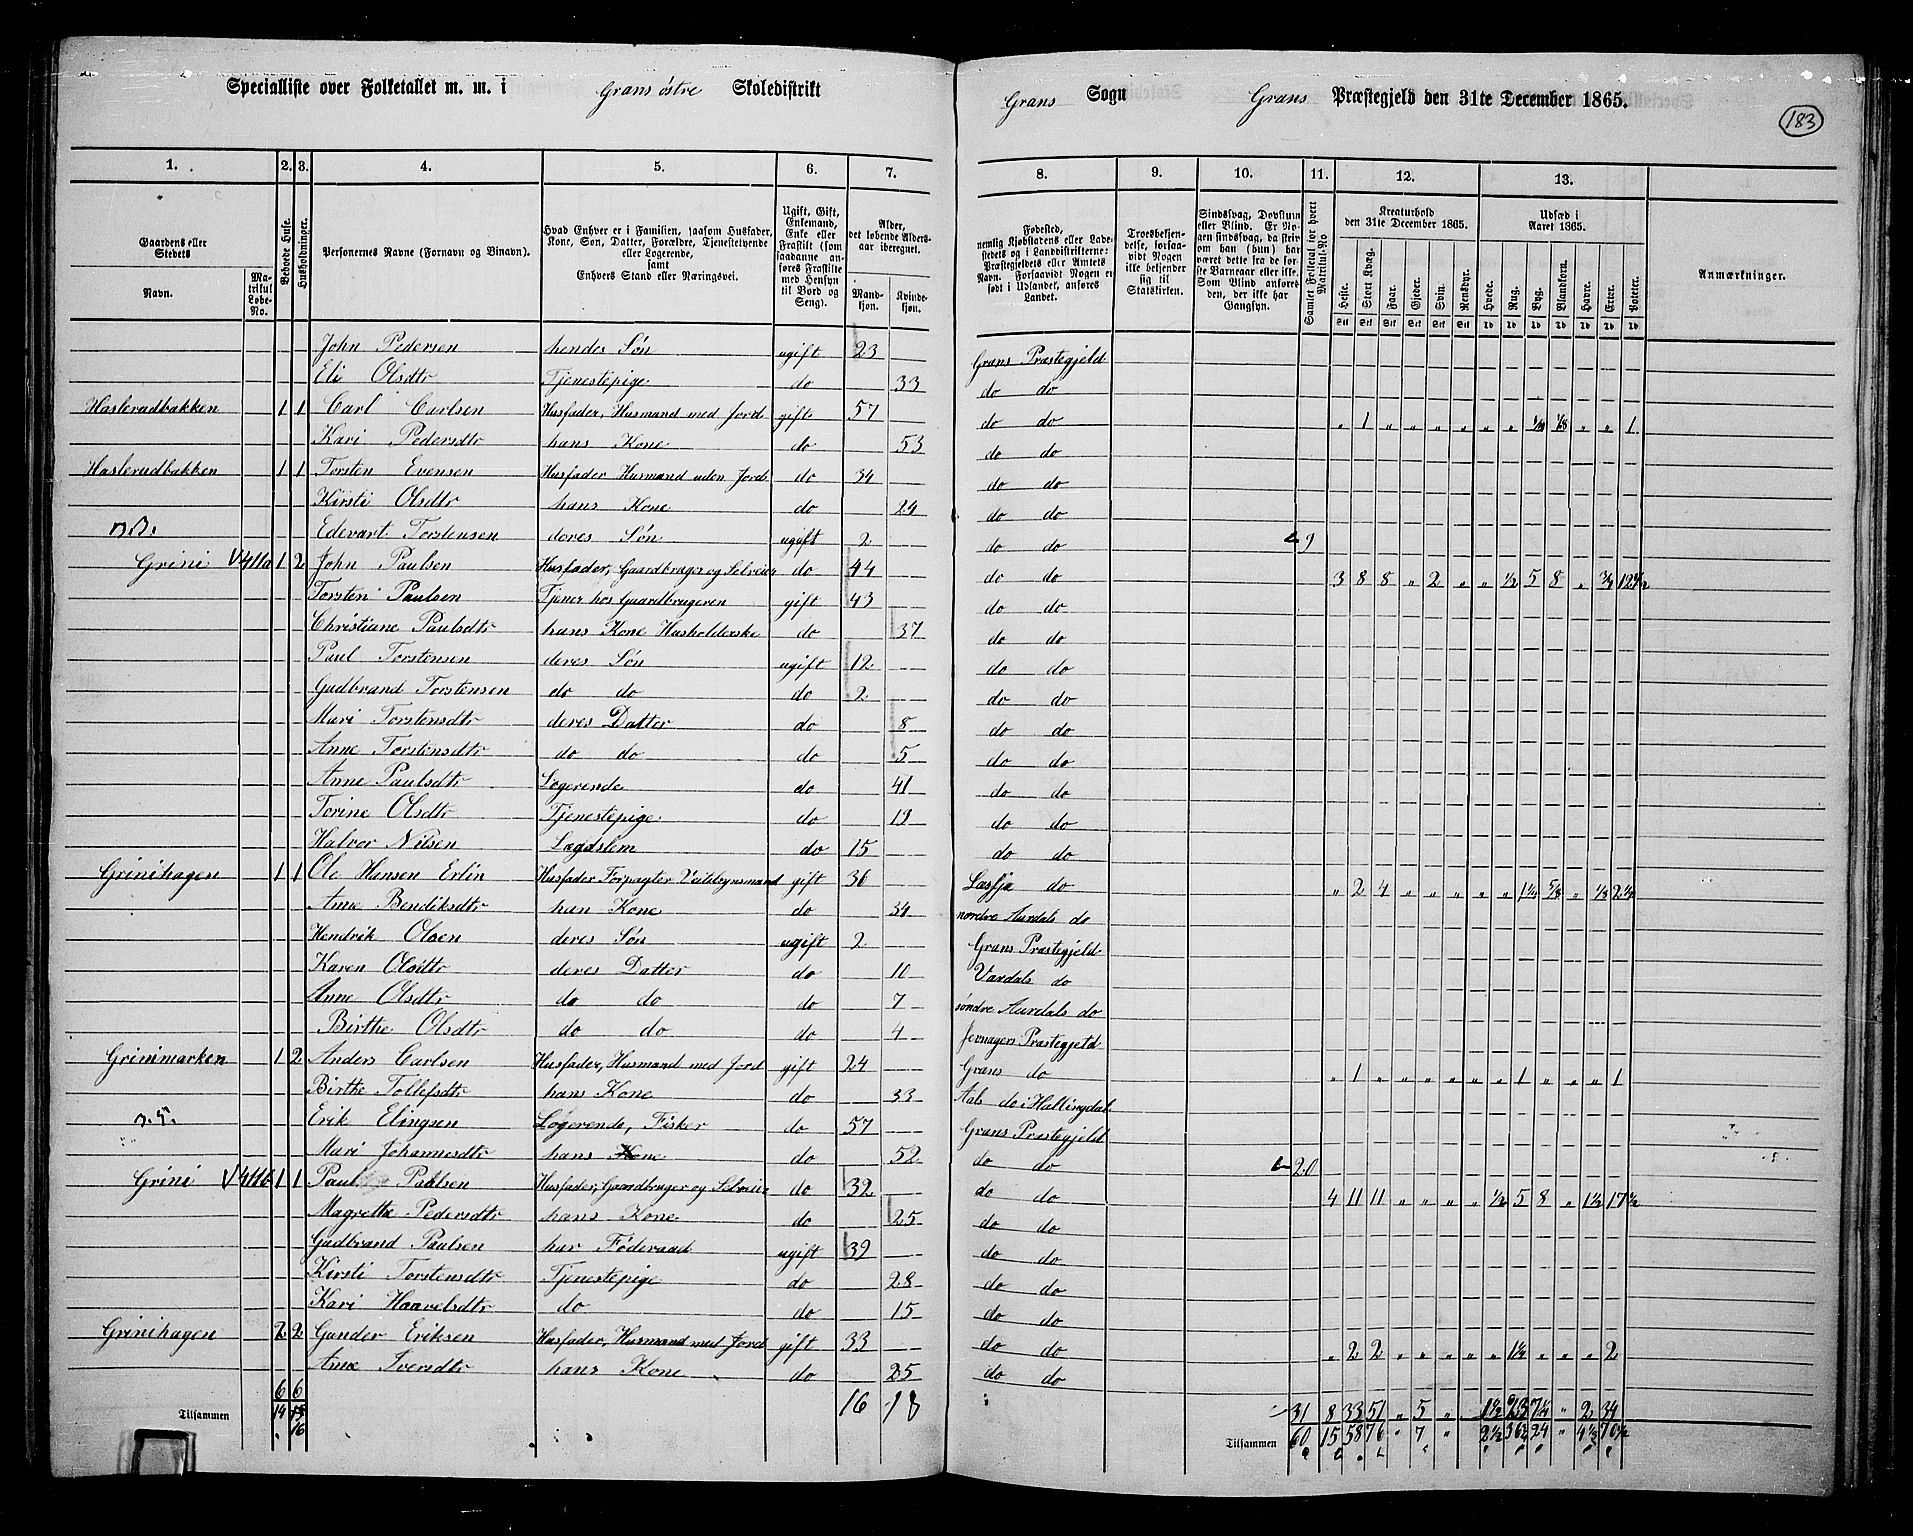 Specialliste over Folketallet m. m. i Grans östre Skoledistrikt Grans Sogn Grans Præstegjeld den 31te December 1865.
183
1. 2. 3. 4. 5. 6. 7. 8. 9. 10. 11. 12. 13.
Gaardens eller Stedets
Navn.
Matrikul Løbe-No.
Beboede Huse.
Husholdninger.
Personernes Navne (Fornavn og Binavn).
Hvad Enhver er i Familien, saasom Husfader, Kone, Søn, Datter, Forældre, Tjenestetyende eller Logerende, samt Enhvers Stand eller Næringsvei.
Ugift, Gift, Enkemand, Enke eller Fraskilt (som saadanne anføres Fraskilte med Hensyn til Bord og Seng).
Alder, det løbende Aldersaar iberegnet.
Mandkjøn. Kvindekjøn.
Fødested, nemlig Kjøbstadens eller Ladestedets og i Landdistrikterne: Præstegjeldets eller Amtets Navn. Forsaavidt Nogen er født i Udlandet, anføres Landet.
Troesbekjendelse, forsaavidt Nogen ikke bekjender sig til Statskirken.
Sindssvag, Døvstum eller Blind. Er Nogen sindssvag, da skriv om han (hun) har været dette fra de første Barneaar eller ikke. Som Blind anføres den, der ikke har Gangsyn.
Samlet Folketal for hvert Matrikul-No
Kreaturhold den 31te December 1865.
Heste. Stort Kvæg. Faar. Gjeder. Svin. Rensdyr.
Udsæd i Aaret 1865.
Hvede. Rug. Byg. Blandkorn. Havre. Erter. Poteter.
Anmærkninger.
John Pedersen hendes Søn ugift 23 Grans Præstegjeld
Eli Olsdtr Tjenestepige do 33 do do
Haslerudbakken 1 1 Carl Carlsen Husfader, Husmand med Jord gift 57 do do „ 1 „ „ „ „ „ „ „ „ 1
Kari Pedersdtr hans Kone do 53 do do
Haslerudbakken 1 1 Torsten Evensen Husfader Husmand uden Jord do 34 do do
Kirsti Olsdtr hans Kone do 24 do do
Edevart Torstensen deres Søn ugift 2 do do 9
Grini 411a 1 2 John Paulsen Husfader, Gaardbruger og Selveier do 44 do do 3 8 8 „ 2 „ „ 1/2 5 8 „ 3/4 12 1/2
Torsten Paulsen Tjener hos Gaardbrugeren gift 43 do do
Christiane Paulsdtr hans Kone Husholderske do 37 do do
Paul Torstensen deres Søn ugift 12 do do
Gudbrand Torstensen do do do 2 do do
Mari Torstensdtr deres Datter do 8 do do
Anne Torstensdtr do do do 5 do do
Anne Paulsdtr Logerende do 41 do do
Torine Olsdtr Tjenestepige do 19 do do
Halvor Nilsen Lægdslem do 15 do do
Grinihagen 1 1 Ole Hansen Erlin Husfader Forpagter Veitilsynsmand gift 36 Læsja do „ 2 4 „ „ „ „ „ 1 1/4 5/8 „ 1/8 2 1/2
Anne Bendiksdtr han Kone do 34 nordre Aurdals do
Hendrik Olsen deres Søn ugift 2 Grans Præstegjeld
Karen Olsdtr deres Datter do 10 Vardals do
Anne Olsdtr do do do 7 søndre Aurdals do
Birthe Olsdtr do do do 4 Jevnager Præstegjeld
Grinimarken 1 2 Anders Carlsen Husfader, Husmand med Jord gift 24 Grans do „ 1 „ „ „ „ „ „ 1 „ „ „ 1
Birthe Tollefsdtr hans Kone do 33 Aals do i Hallingdal
Erik Elingsen Logerende, Fisker do 57 Grans Præstegjeld
Mari Johannesdtr hans Kone do 52 do do 20
Grini 411b 1 1 Paul Paulsen Husfader, Gaardbruger og Selveier do 32 do do 4 11 11 „ „ „ „ 1/2 5 8 „ 1 1/2 17 1/2
Magrethe Pedersdtr hans Kone do 25 do do
Gudbrand Paulsen har Föderaad ugift 39 do do
Kirsti Torstensdtr Tjenestepige do 28 do do
Kari Haavelsdtr do do 15 do do
Grinihagen 2 2 Gunder Eriksen Husfader, Husmand med Jord gift 33 do do „ 2 2 „ „ „ „ 1 1/4 „ „ „ 2
Anne Iversdtr hans Kone do 25 do do
6 6
Tilsammen 14 16 16 18 31 8 33 51 „ 5 „ 1 1/2 23 7 1/4 „ 2 34
Tilsammen 60 15 58 76 „ 7 „ 2 1/2 36 1/2 24 „ 4 1/2 70 1/2